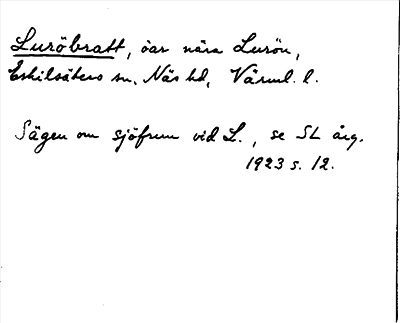 Luröbratt, öar nära Lurön,
Eskilsäters sn, Näs hd, Värml. l.
Sägen om sjöfrun vid L., se SL årg.
1923 s. 12.